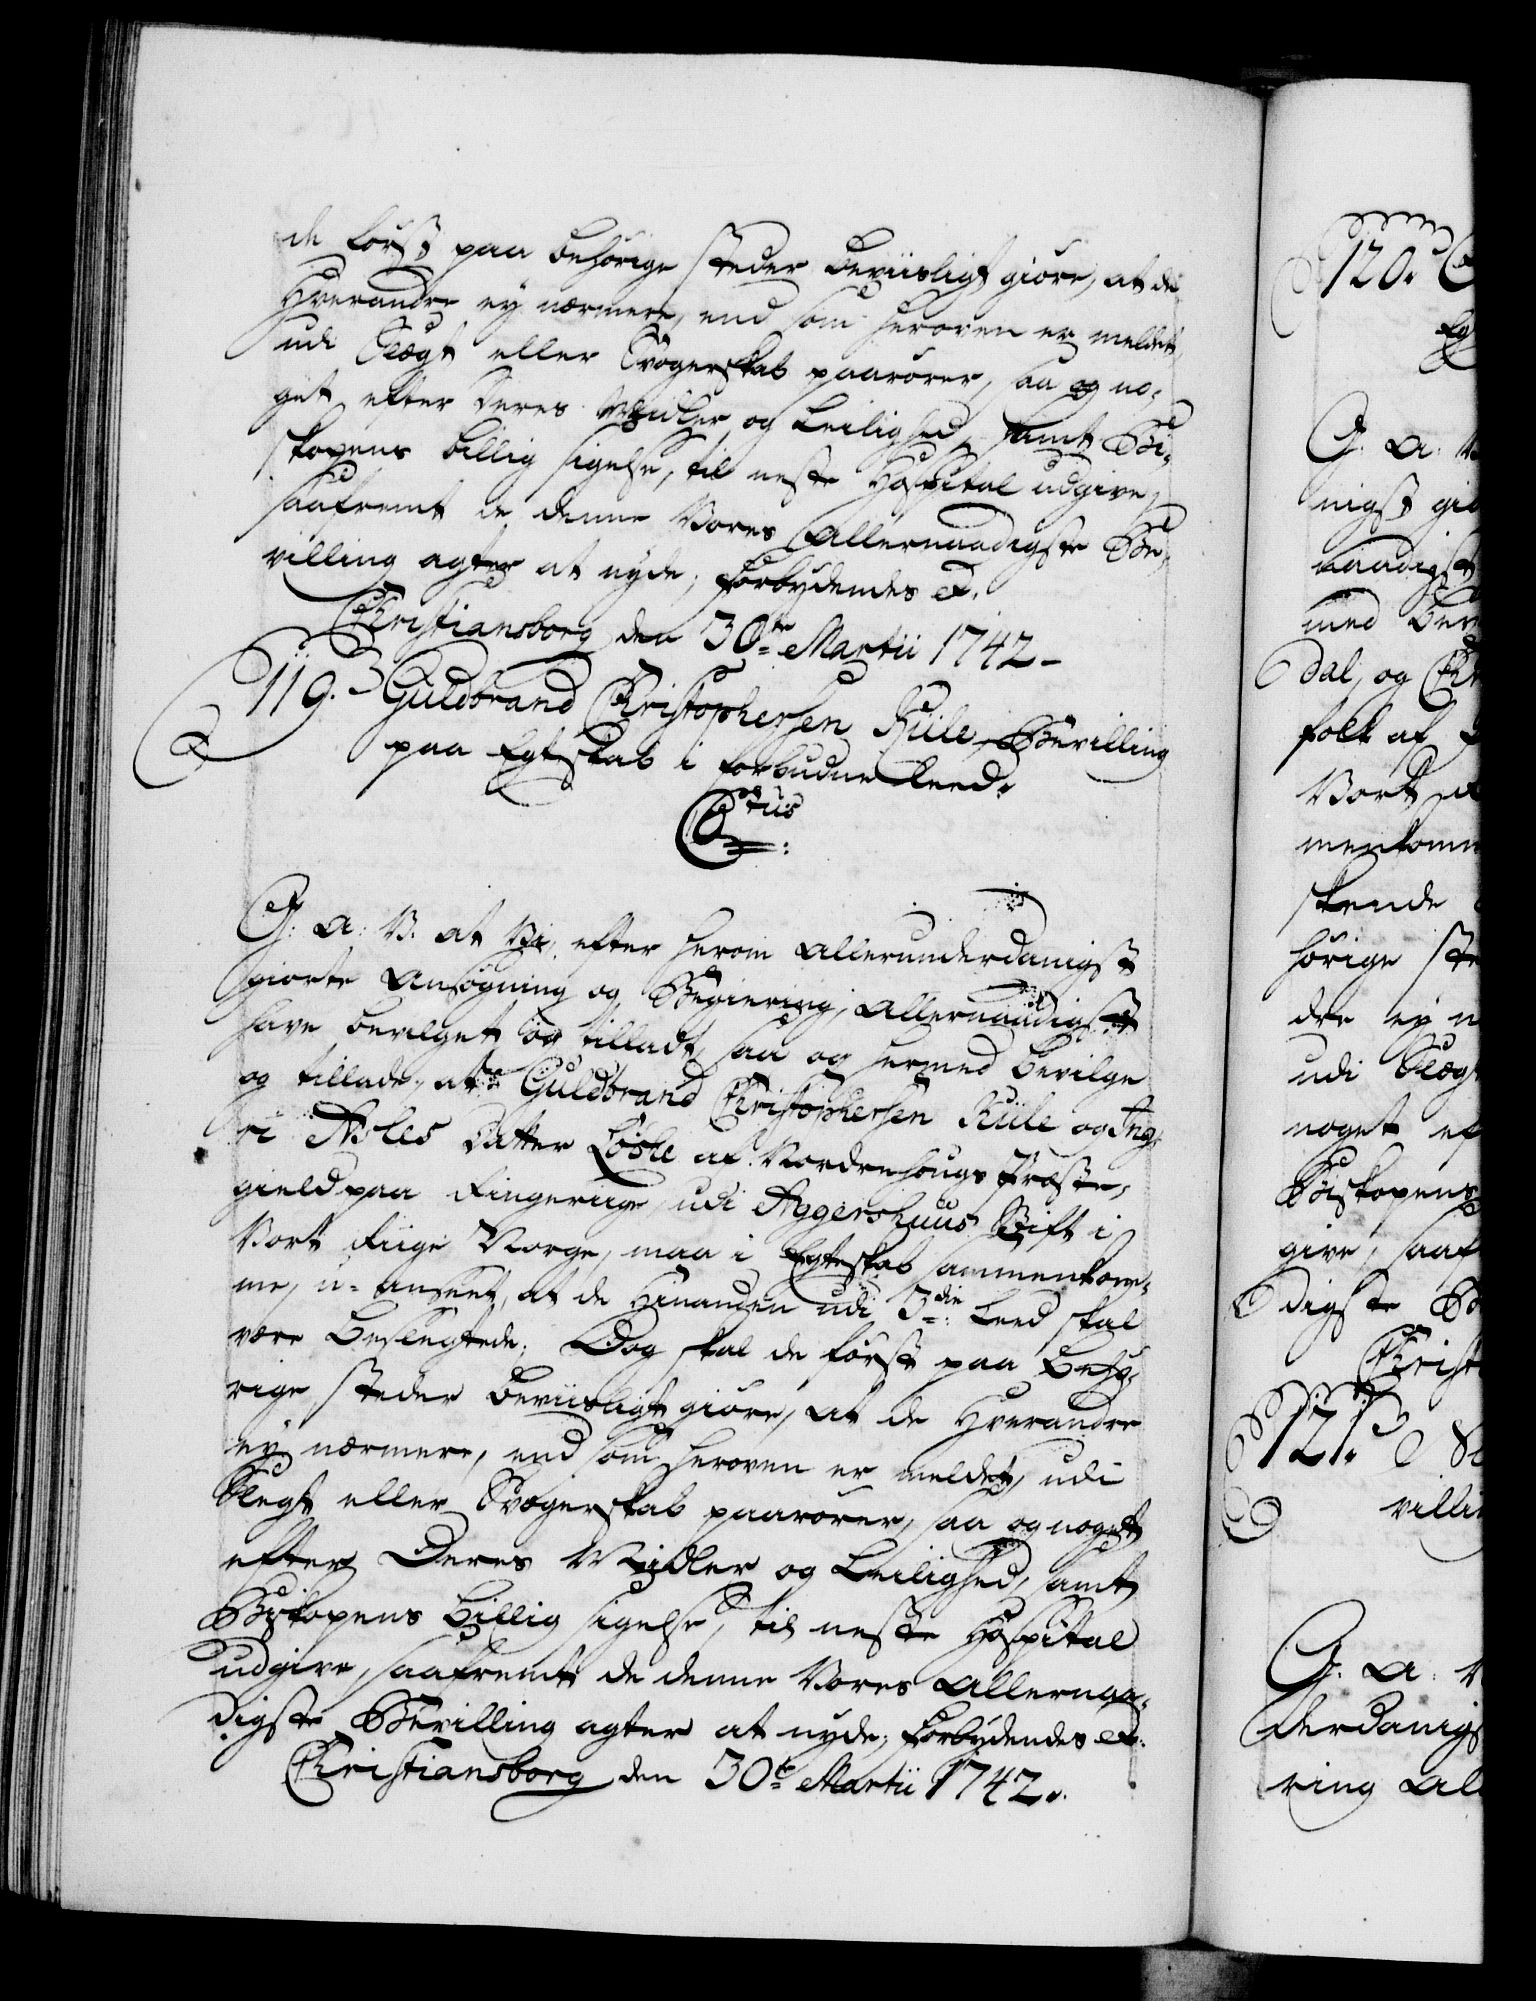 de først paa behørige steder beviisligt giøre, at de
Hverandre ey nærmere, end som heroven er meldet,
udi Slægt eller Svogerskab paarører, saa og no-
get efter Deres Midler og Leilighed, samt Bi-
skopens billig sigelse, til neste Hospital udgive,
saafremt de denne Vores Allernaadigste Be-
villing agter at nyde; Forbydendes &.
Christiansborg den 30te Martii 1742 -
119. Guldbrand Christophersen Kiile Bevilling
paa Egteskab i forbudne Leed.
Gratiis
G: A: V. at Vi, efter herom allerunderdanigst
giorte Ansøgning og Begiering, allernaadigst
have bevilget og tilladt, saa og hermed bevilge
og tillade, at Guldbrand Christophersen Kiile og Ing-
ri Asles Datter Løsle af Nordrehougs Præste-
gield paa Ringerige udi Aggershuus Stift i
Vort Riige Norge, maa i Egteskab sammenkom-
me, u-anseet, at de Hinanden udi 3die Leed skal
være beslegtede; Dog skal de først paa behø-
rige steder beviisligt giøre, at de Hverandre
ey nærmere, end som heroven er meldet, udi
Slegt eller Svogerskab paarører, saa og noget
efter Deres Midler og Leilighed, samt
Biskopens billig sigelse, til neste Hospital
udgive, saafremt de denne Vores Allernaa-
digste Bevilling agter at nyde; Forbydendes &:
Christiansborg den 30te Martii 1742.
120.
G: A: V
nigst gio
naadigst
med bev
dal, og Chr
folk af
Vort R
menkomm
skende
hørige ste
dre ey n
udi Slægt
noget ef
Biskopens
give, saaf
digste B
Christ
121.
villi
G: A: V
derdanigs
ring all